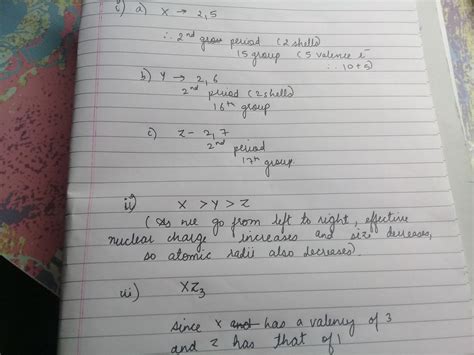 i) a) X → 2,5
∴ 2nd period (2 shells)
15 group (5 valence e-
∴ 10+5)
b) Y → 2,6
2nd period (2 shells)
16th group
c) Z - 2,7
2nd period
17th group
ii) X > Y > Z
(As we go from left to right, effective
nuclear charge increases and size decreases,
so atomic radii also decreases).
iii) XZ3
since X has a valency of 3
and Z has that of 1